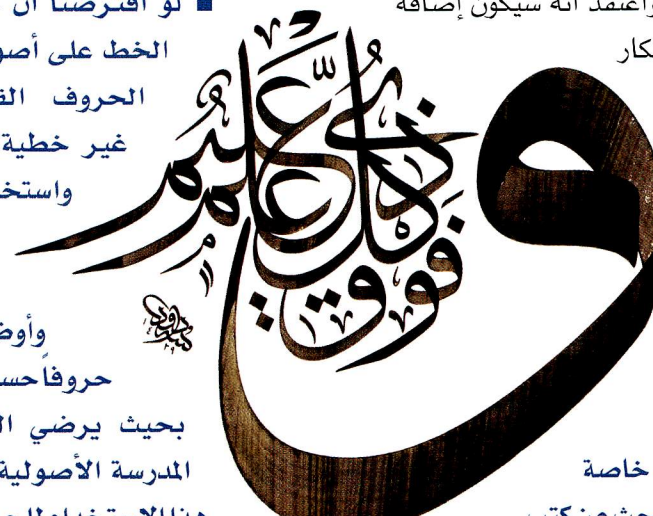 واعتقد أنه سيكون إضافة
كار
خاصة
■ لو افترضنا أن
الخط على أصو
الحروف الق
غير خطية
واستخ
وأوض
حروفاً حس
بحيث يرضي ال
المدرسة الأصولية
وفوق كل ذي علم عليم